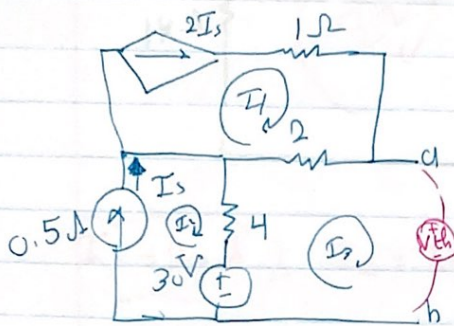 2Is 1Ω
I1
2
a
Is
0.5A I2 4 I3 Vth
30V
+
b